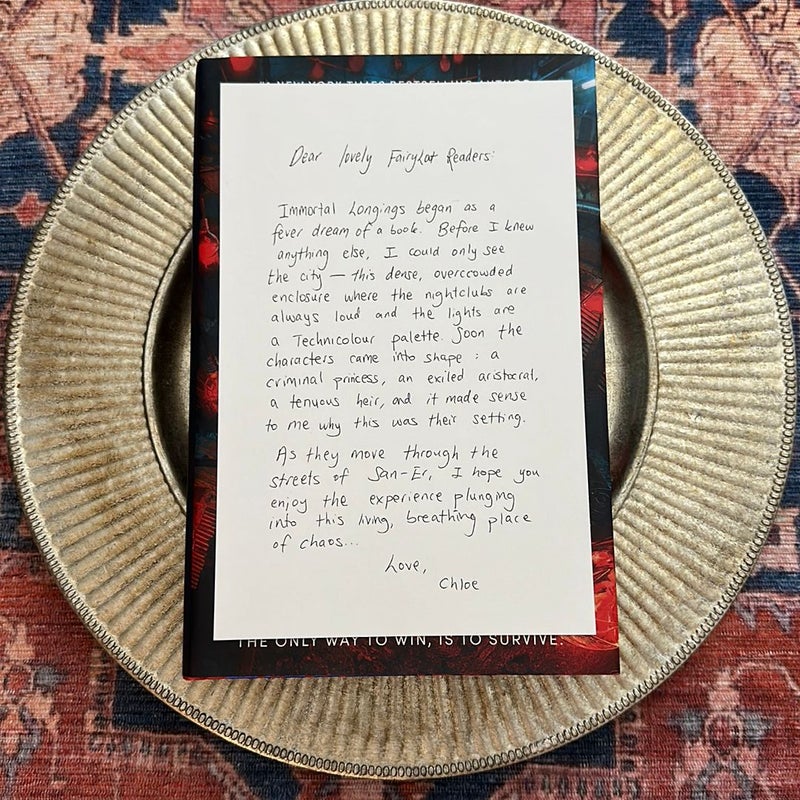 #1 NEW YORK TIMES BESTSELLING AUTHOR
Dear lovely FairyLoot Readers:
Immortal Longings began as a
fever dream of a book. Before I knew
anything else, I could only see
the city — this dense, overcrowded
enclosure where the nightclubs are
always loud and the lights are
a Technicolour palette. Soon the
characters came into shape : a
criminal princess, an exiled aristocrat,
a tenuous heir, and it made sense
to me why this was their setting.
As they move through the
streets of San-Er, I hope you
enjoy the experience plunging
into this living, breathing place
of chaos...
Love,
Chloe
THE ONLY WAY TO WIN, IS TO SURVIVE.